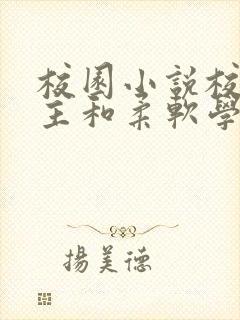 校園小說校
主和柔軟學
揚美德